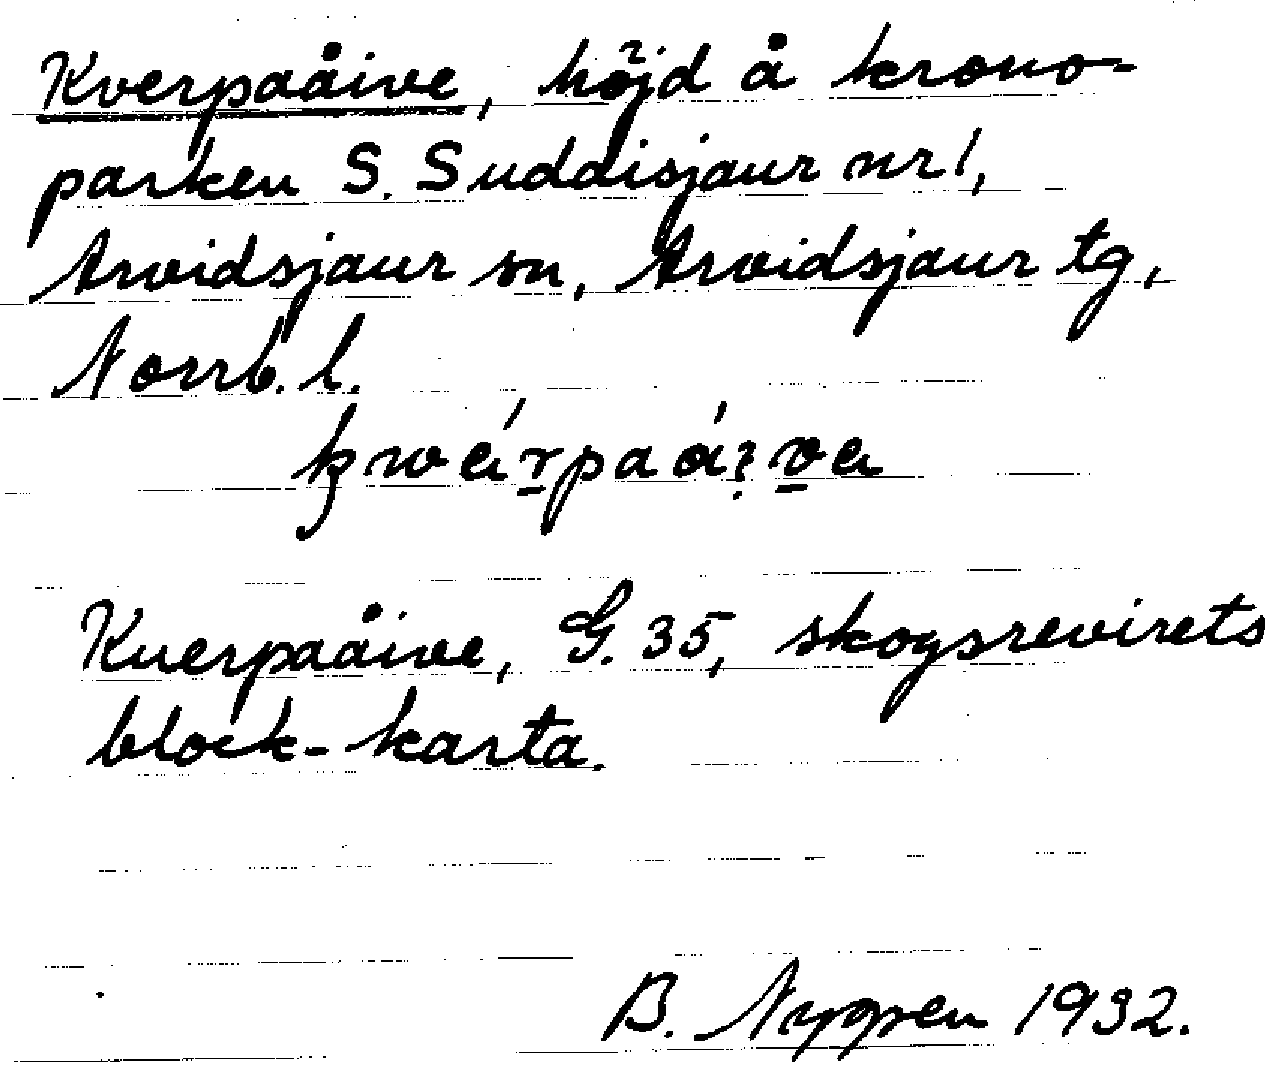 Kverpaåive, höjd å krono-
parken S. Suddisjaur nr 1,
Arvidsjaur sn, Arvidsjaur tg,
Norrb. l.
Kuerpaåive, G. 35, skogsrevirets
block-karta.
B. Nyppen 1932.